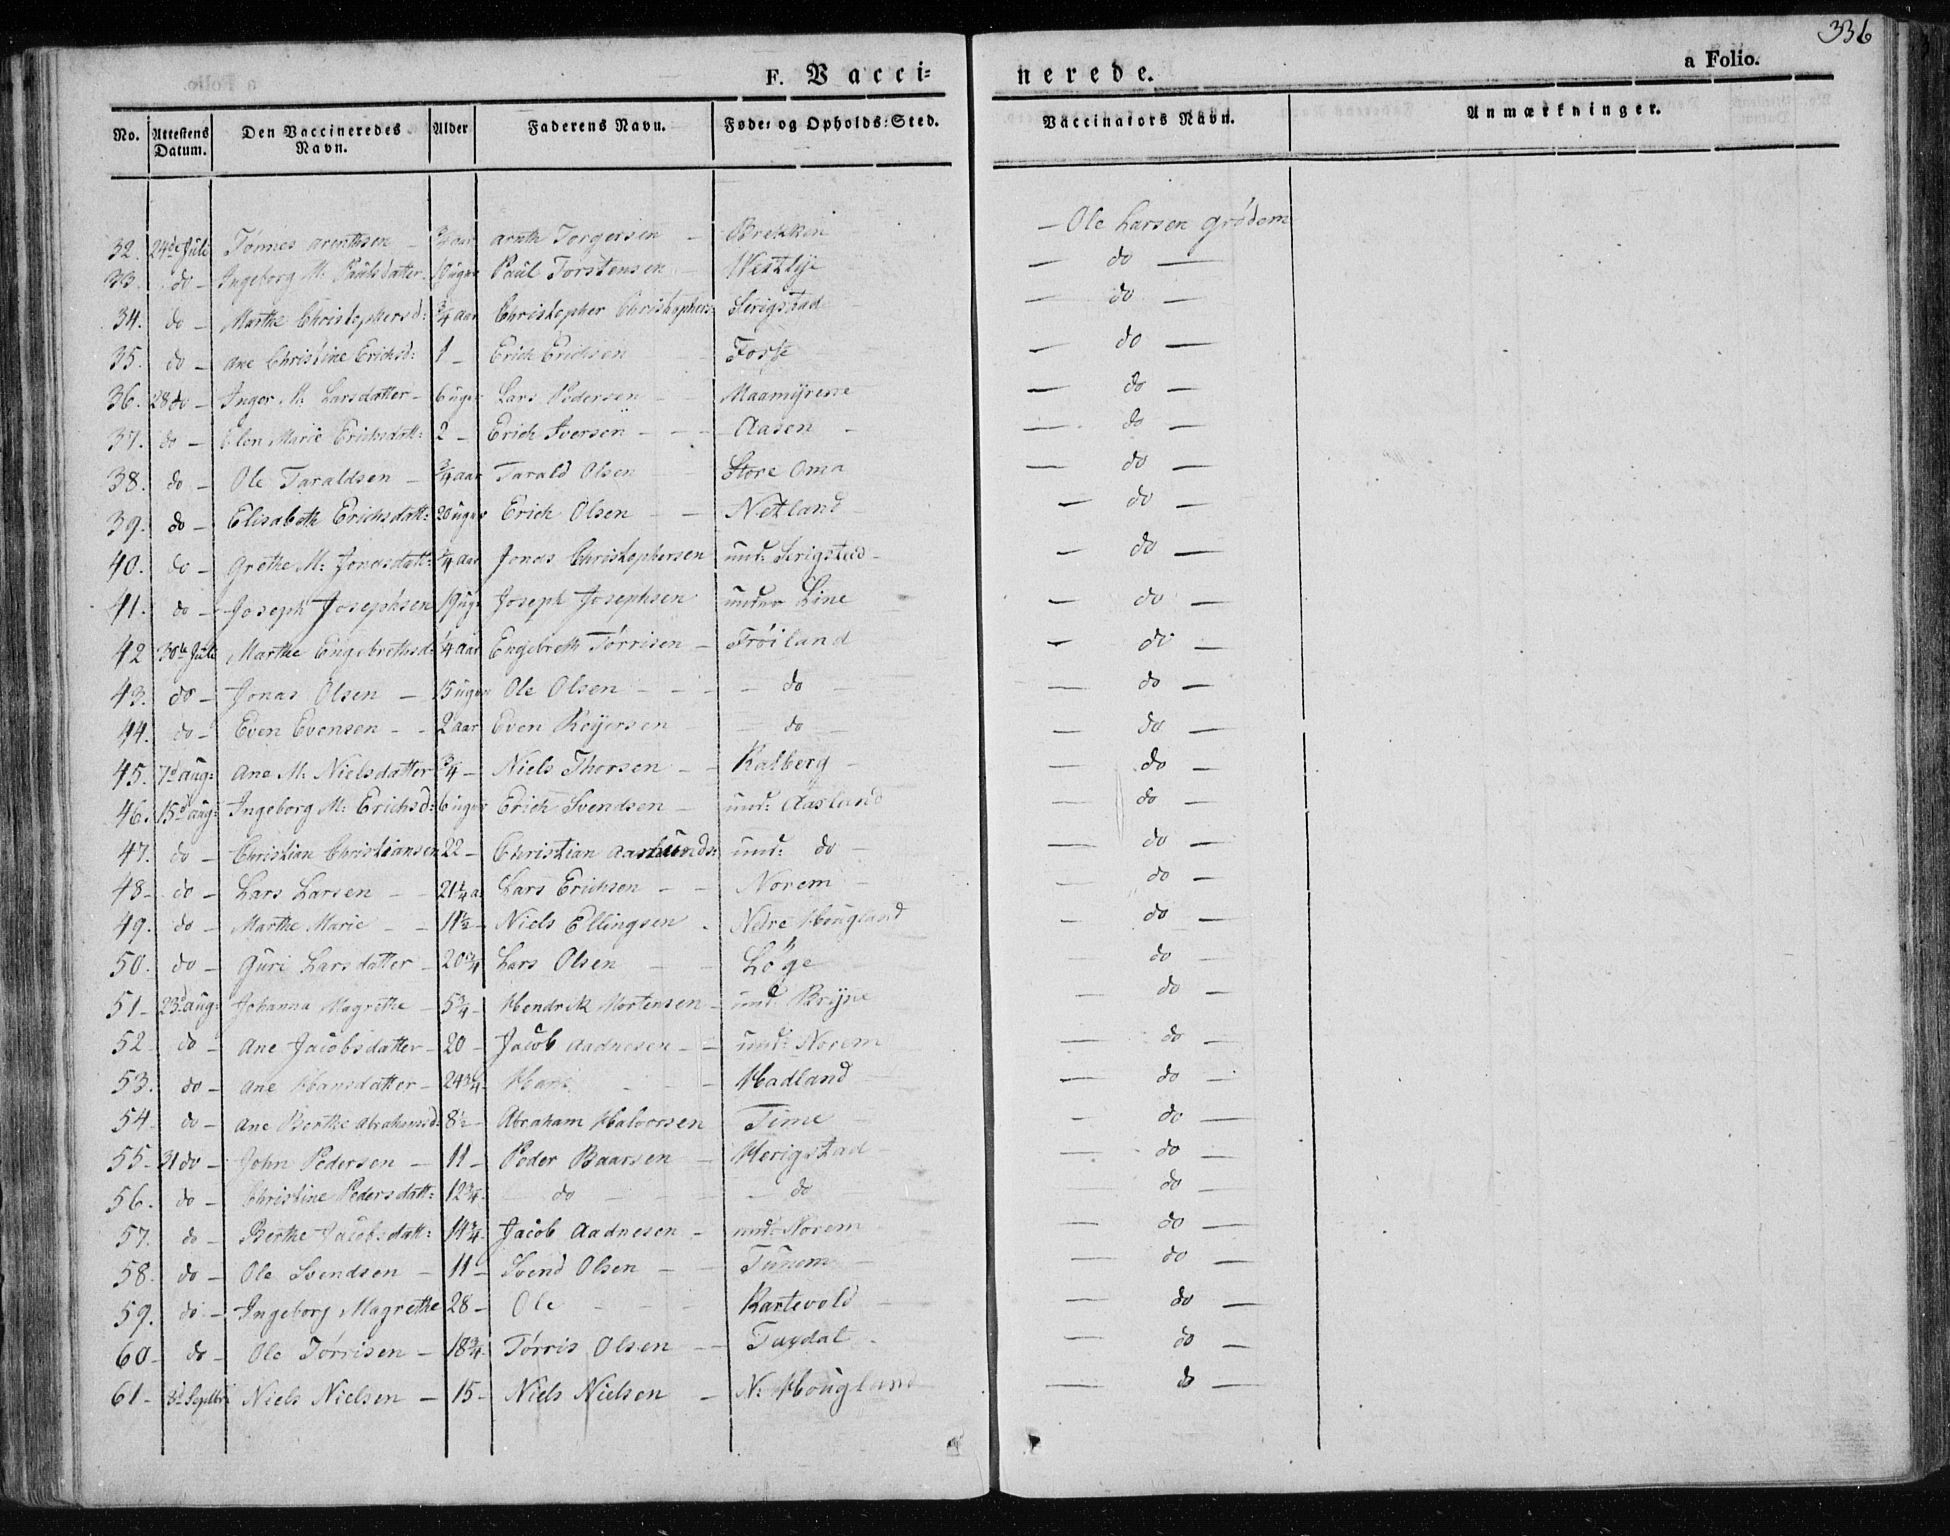 336
F. Vacci=
nerede.
a Folio.
No. Attestens Datum. Den Vaccineredes Navn. Alder Faderens Navn. Føde= og Opholds=Sted. Vaccinators Navn. Anmærkninger.
32. 24de Juli Tønnes Arenthsen – 3/4 aar Arnth Torgersen – Brekken – Ole Larsen Grödem
33. do – Ingeborg M: Paulsdatter 10 uger Paul Torstensen – Westlÿe – do –
34. do – Marthe Christophersd: 3/4 aar Christopher Christophers: Serigstad – do –
35. do – Ane Christine Erichsd: 1 – Erich Erichsen Fosse – do –
36. 28 do – Inger M: Larsdatter – 6 uger Lars Pedersen – Maamÿrene – do –
37. do – Elen Marie Erichsdatt: 2 – Erich Iversen – – – Aasen – – do –
38. do – Ole Taraldsen – 3/4 aar Tarald Olsen Store Oma – do –
39. do – Elisabeth Erichsdatt: 20 uger Erich Olsen – – Netland – do –
40. do – Grethe M: Jonasdatt: 3/4 aar Jonas Christophersen und: Serigstad – – do –
41. do – Joseph Josephsen 19 ug: Joseph Josephsen under Line – do –
42 30te Juli Marthe Engebrethsd: 1/4 aar Engebreth Tørrisen – Fröiland – do –
43. do – Jonas Olsen – 15 uger Ole Olsen – – – – do – do –
44. do – Even Evensen – – 2 aar Even Reÿersen – – do – do –
45. 7d Aug: Ane M: Nielsdatter 3/4 – Niels Thorsen – – Kalberg – – do –
46. 15d Aug: Ingeborg M: Erichsd: 6 uger Erich Svendsen – und: Aasland – do –
47. do – Christian Christiansen 22 – Christian Aasmunds: und: do – – do –
48 – do – Lars Larsen – – 21 1/4 a: Lars Erichsen – – Norem – – do –
49. do – Marthe Marie – – 11 1/2 – Niels Ellingsen – Nedre Hougland – do –
50. do – Guri Larsdatter – 20 3/4 Lars Olsen – – Löge – do –
51 – 23d Aug: Johanna Magrethe – 5 3/4 – Hendrik Mortensen – und: Brÿne – do –
52 do – Ane Jacobsdatter – 20 – Jacob Aadnesen – – und: Norem – do –
53. do – Ane Hansdatter – 24 3/4 – Hans – – – Hadland – – do –
54 – do – Ane Berthe Abrahamsd: 8 1/2 – Abraham Halvorsen Time – – do –
55 – 31 do – John Pedersen – 11 – Peder Baarsen – Herigstad – – do –
56. do – Christine Pedersdatt: 12 3/4 – do – – – – do – do –
57. do – Berthe Jacobsdatt: 14 3/4 – Jacob Aadnesen – und: Norem – do –
58. do – Ole Svendsen – 11 – Svend Olsen – – Tunem – – do –
59. do – Ingeborg Magrethe 28 – Ole – – – Kartevold – do –
60 – do – Ole Tørrisen – 18 3/4 – Tørris Olsen – – Taxdal – – do –
61 – 8d Septbr: Niels Nielsen – 15 – Niels Nielsen – N: Hougland – do –